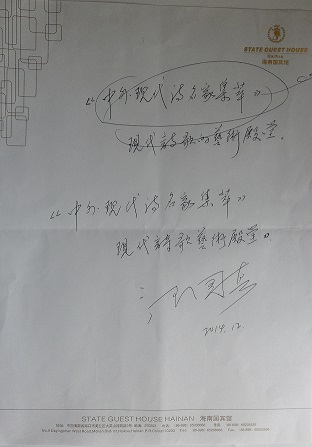 STATE GUEST HOUSE
海南国宾馆
《中外现代诗名家集萃》
现代詩歌的藝術殿堂。
《中外现代诗名家集萃》
现代詩歌藝術殿堂。
汪国真
2014.12.
STATE GUEST HOUSE HAINAN 海南国宾馆